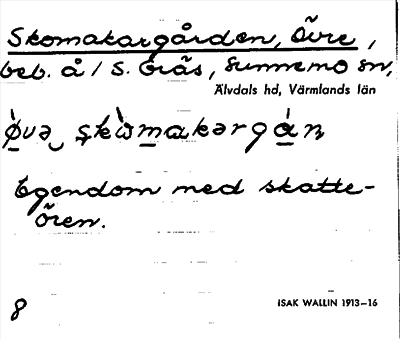 Skomakargården, Övre,
beb. å 1 S. Gräs, Sunnemo sn,
Älvdals hd, Värmlands län
Egendom med skatte-
ören.
8
ISAK WALLIN 1913–16